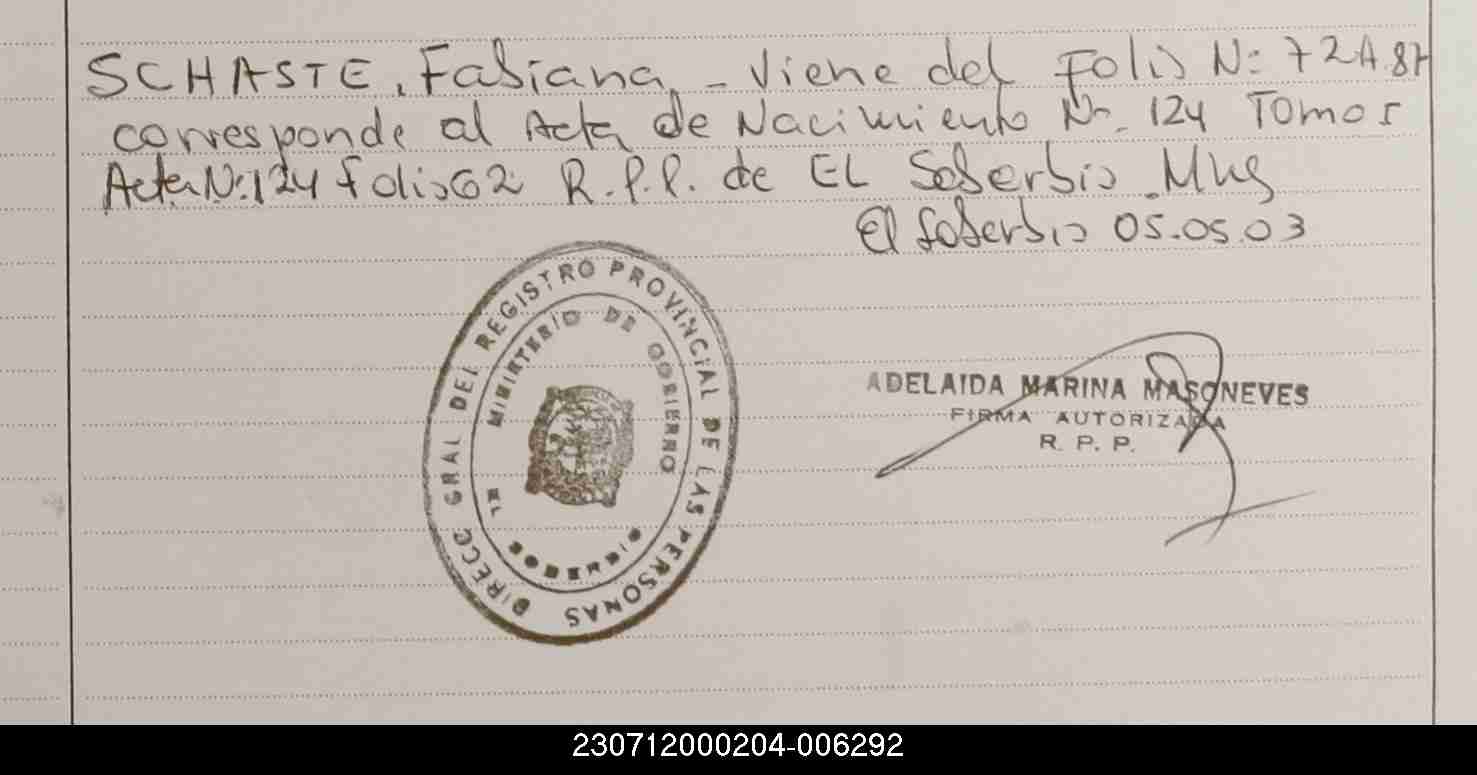 SCHASTE, Fabiana - Viene del Folio N: 72A.87
corresponde al Acta de Nacimiento Nr. 124 Tomo 5
Acta N: 124 folio 62 R.P.P. de El Soberbio Mnes
El Soberbio 05.05.03
DIRECC GRAL DEL REGISTRO PROVINCIAL DE LAS PERSONAS
MINISTERIO DE GOBIERNO
EL SOBERBIO
ADELAIDA MARINA MASONEVES
FIRMA AUTORIZADA
R. P. P.
230712000204-006292